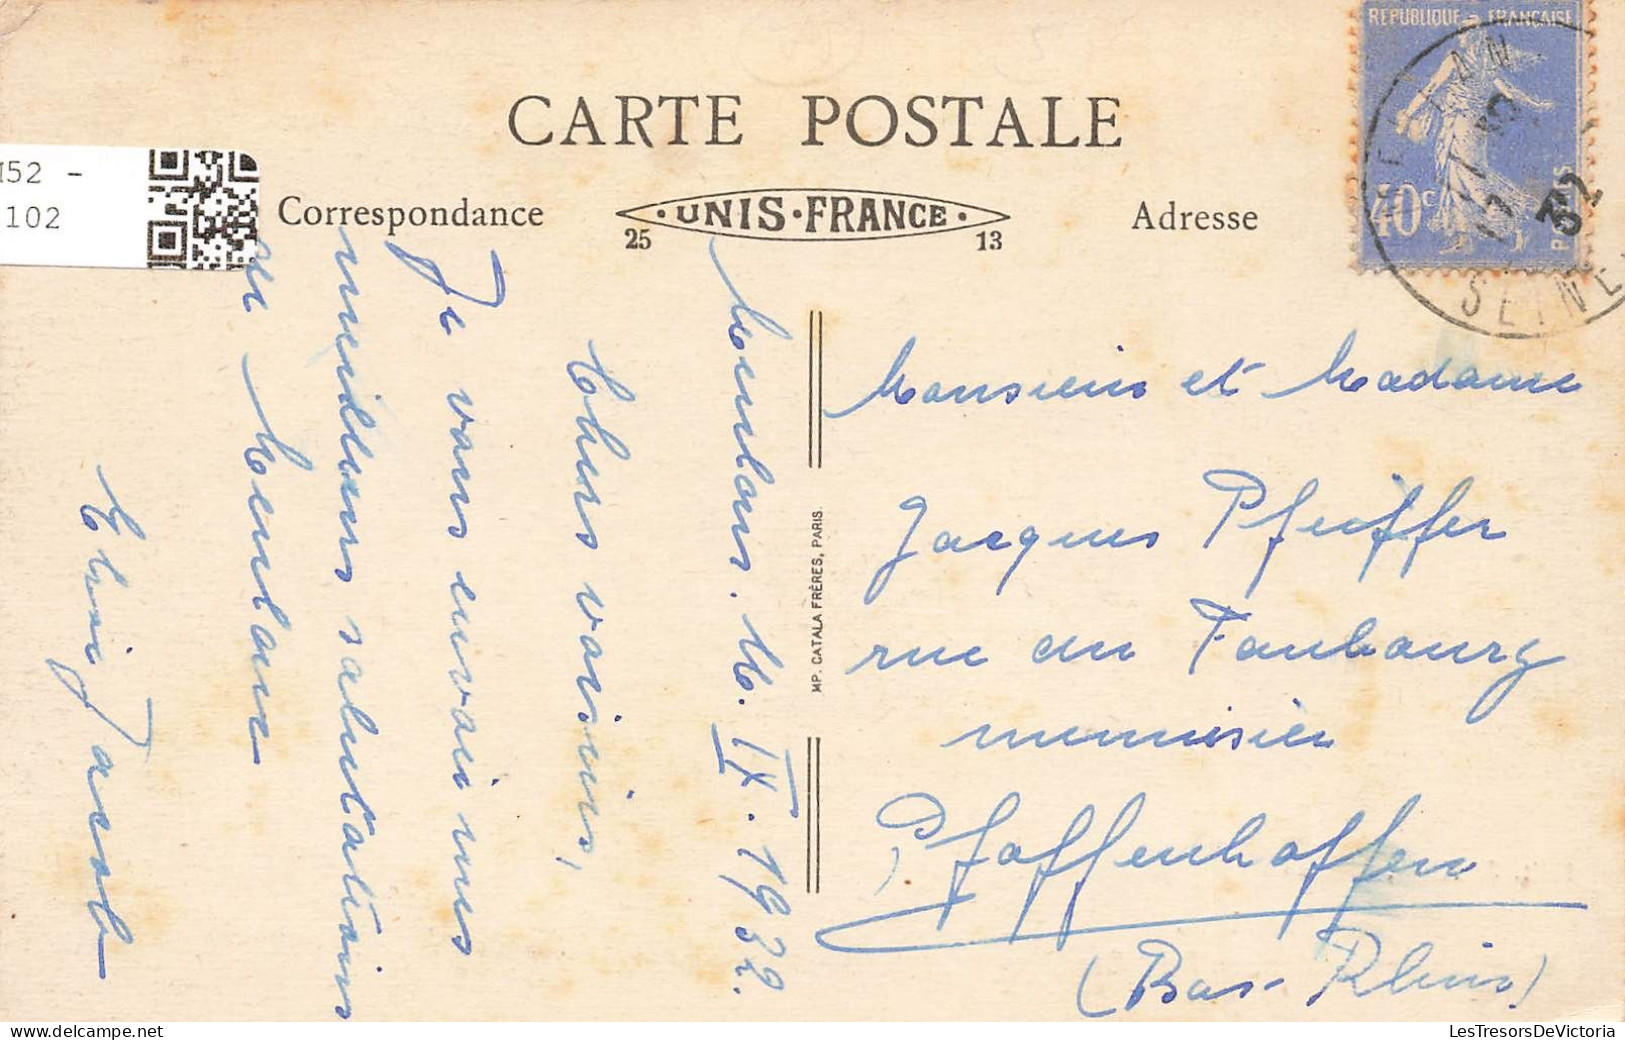 CARTE POSTALE
Correspondance
UNIS·FRANCE
25
13
Adresse
RÉPUBLIQUE FRANÇAISE
40c
POSTES
32
SEINE
152 -
102
Meulan. 16. IX. 1932.
Chers voisins,
Je vous envoie mes
meilleurs salutations
de Meulan
MP. CATALA FRÈRES, PARIS.
Monsieur et Madame
Jacques Pfeiffer
rue du Faubourg
menuisier
Pfaffenhoffen
(Bas-Rhin)
LesTresorsDeVictoria